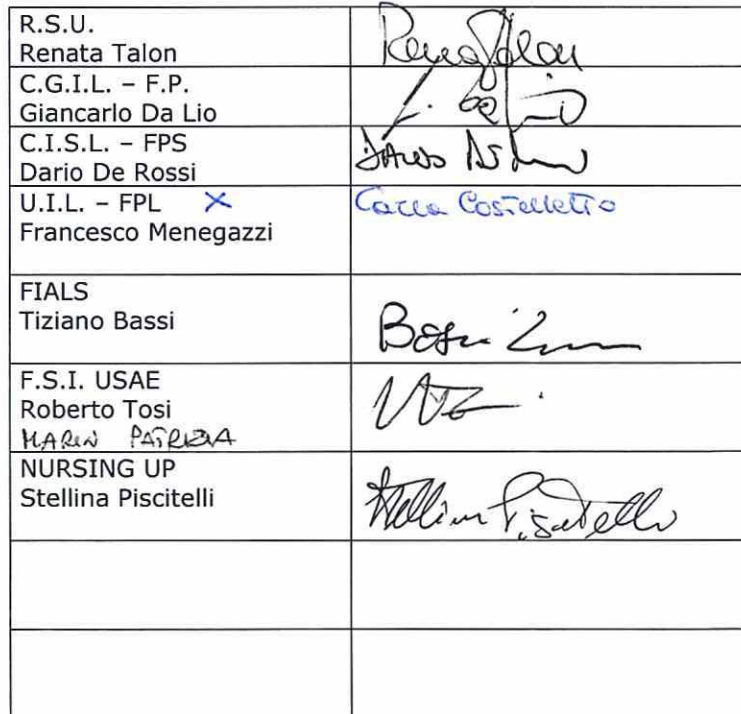 R.S.U.
Renata Talon
Renata Talon
C.G.I.L. – F.P.
Giancarlo Da Lio
C.I.S.L. – FPS
Dario De Rossi
U.I.L. – FPL X
Francesco Menegazzi
Carla Costelletto
FIALS
Tiziano Bassi
F.S.I. USAE
Roberto Tosi
MARIN PATRIZIA
NURSING UP
Stellina Piscitelli
Stellina Piscitelli